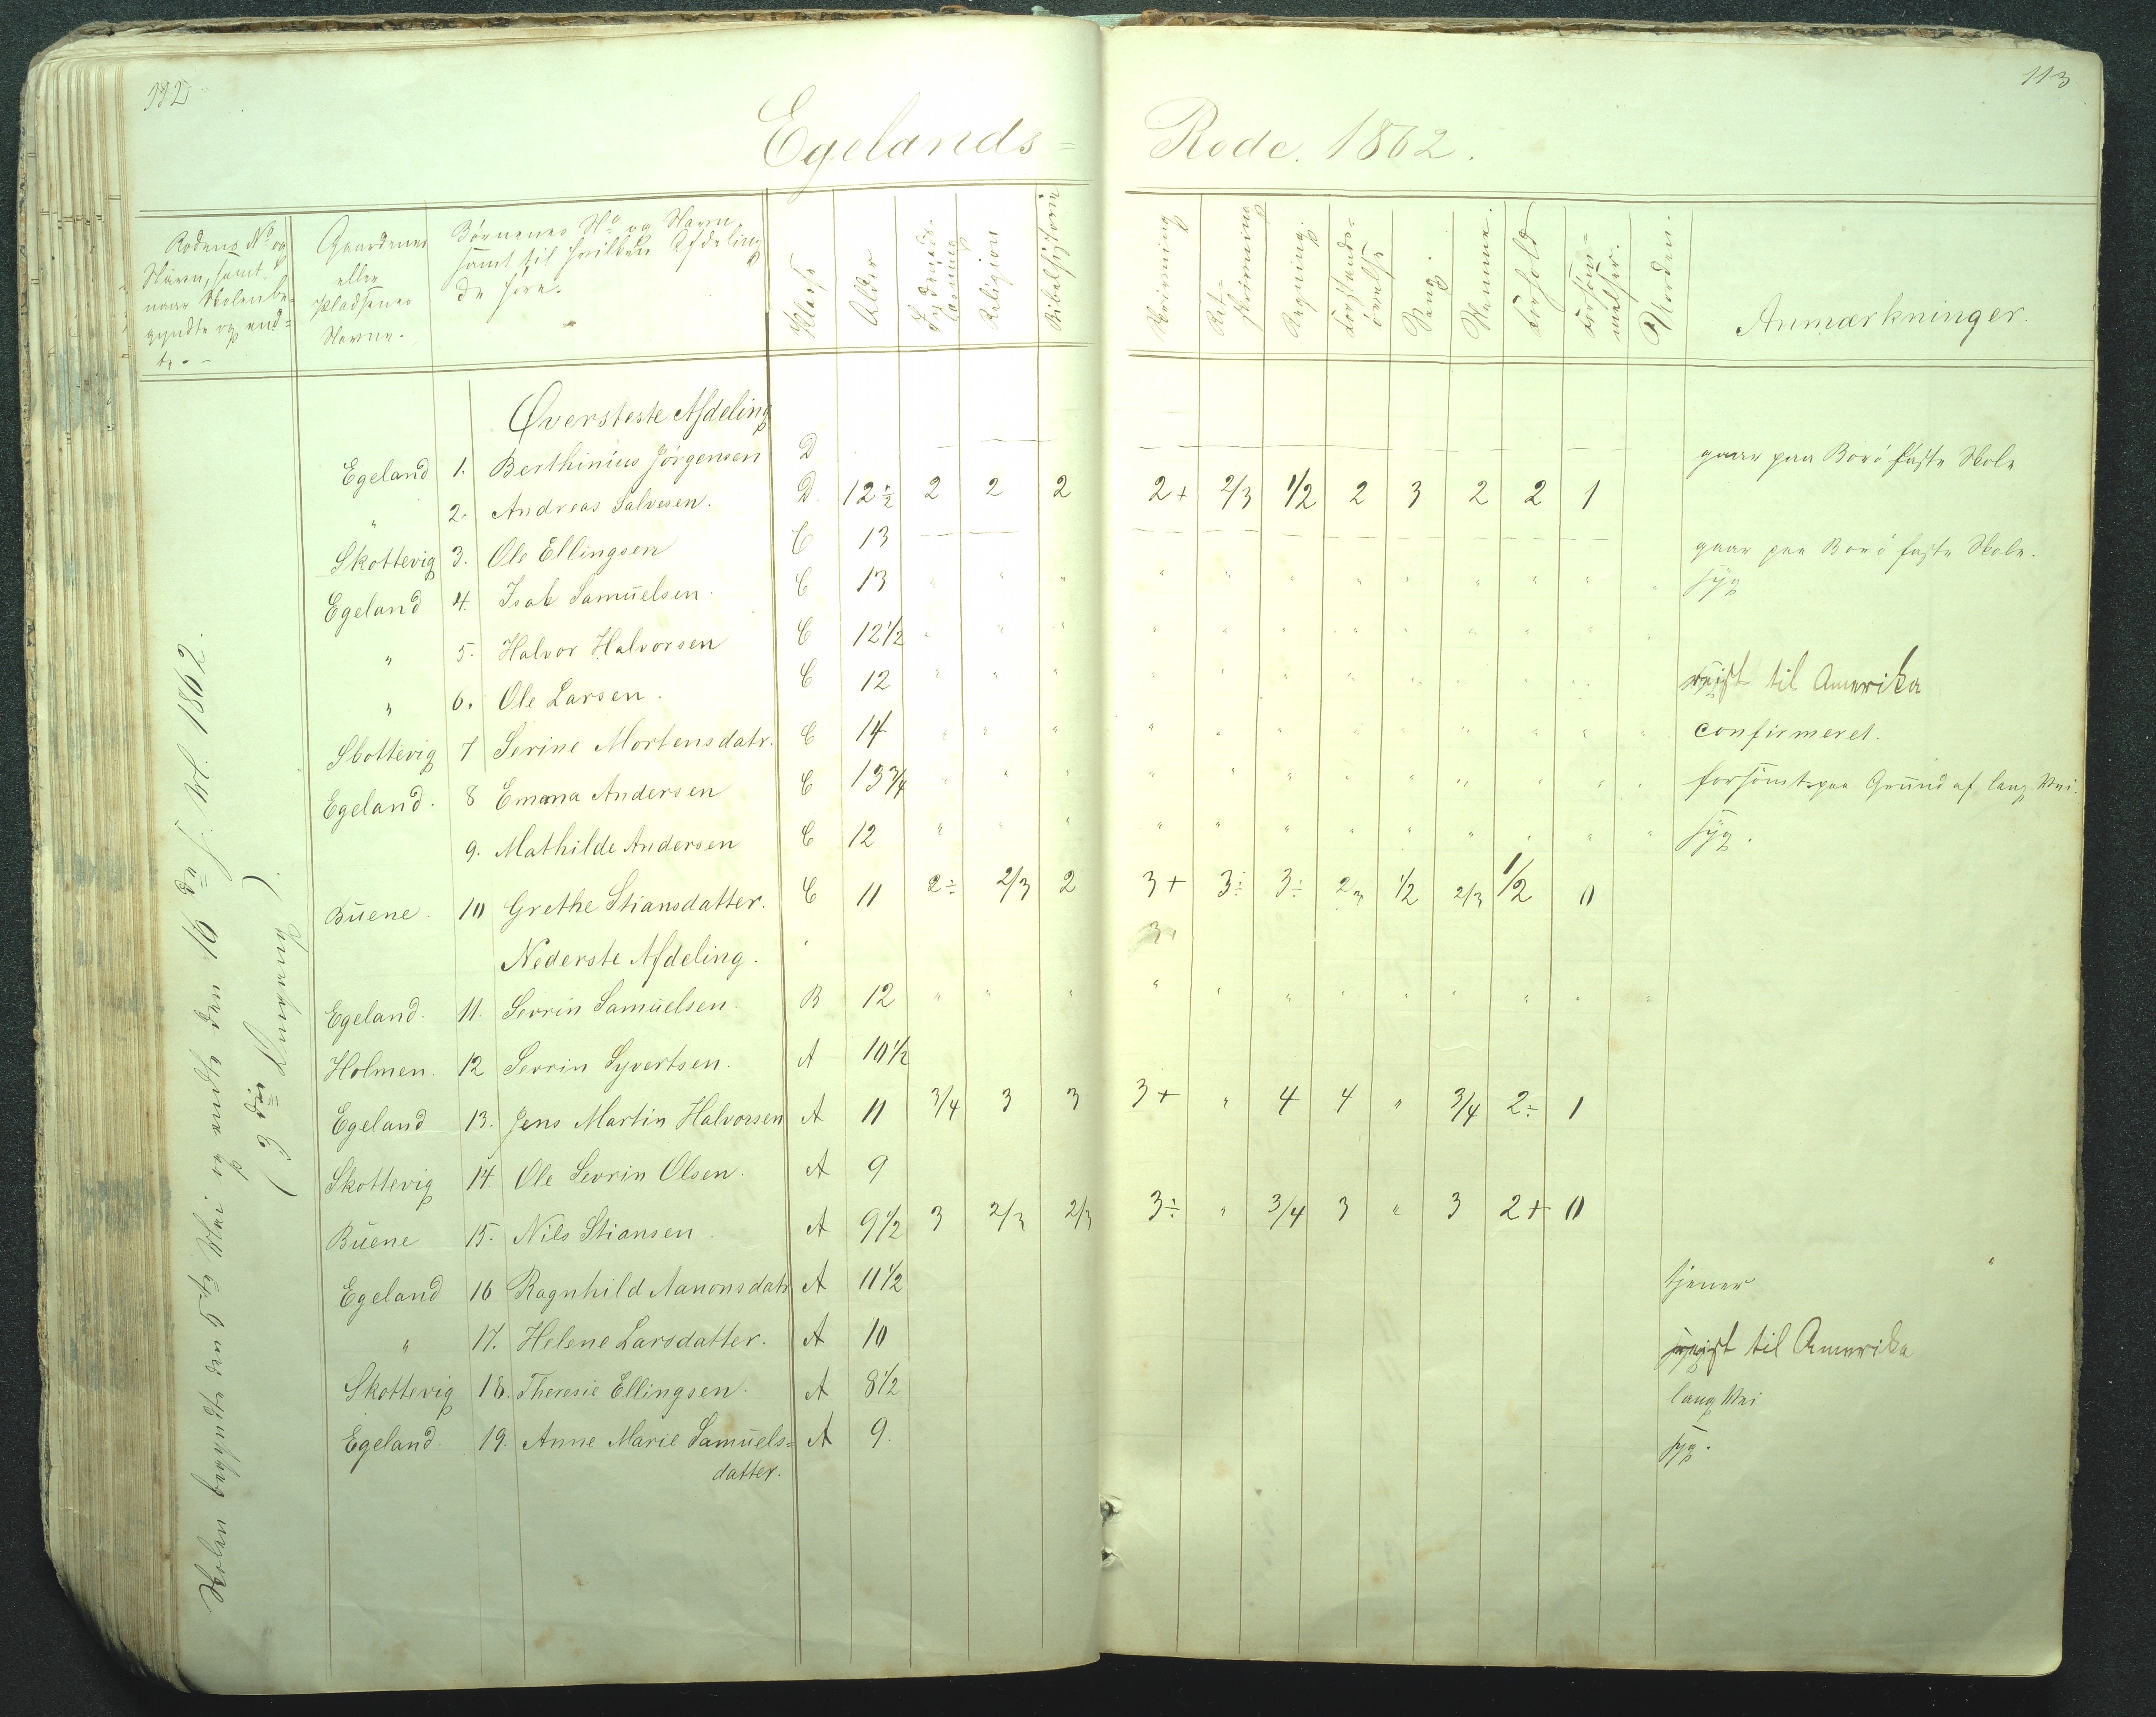 112
113
Egelands = Rode. 1862.
Rodens No og Navn, samt naar Skolen begyndte og endte
Gaardenes eller Pladsenes Navne.
Børnenes No og Navn, samt til hvilken Afdeling de høre.
Klasse
Alder
Indenads-læsning
Religion
Bibelhistorie
Skrivning
Ret-skrivning
Regning.
Forstands-øvelse
Sang.
Nemme.
Forhold
Forsømmelser.
Anmærkninger.
Skolen begyndte den 5te Mai og endte den 16de s. M. 1862.
(3die Omgang).
Øversteste Afdeling
Egeland 1. Berthinius Jörgensen D — — — — — — — gaar paa Borö faste Skole
" 2. Andreas Salvesen. D. 12 1/2 2 2 2 2+ 2/3 1/2 2 3 2 2 1
Skottevig 3. Ole Ellingsen C 13 — — — — — — — gaar paa Borö faste Skole.
Egeland 4. Isak Samuelsen. C 13 " " " " " " " " " " " " syg
" 5. Halvor Halvorsen C 12 1/2 " " " " " " " " " " " "
" 6. Ole Larsen. C 12 " " " " " " " " " " " reist til Amerika
Skottevig 7 Serine Mortensdatr. C 14 " " " " " " " " " " " " confirmeret.
Egeland. 8 Emma Andersen C 13 3/4 " " " " " " " " " " " " forsømt paa Grund af lang Vei.
9. Mathilde Andersen C 12 " " " " " " " " " " " " syg.
Buene. 10 Grethe Stiansdatter. C 11 2÷ 2/3 2 3+ 3÷ 3÷ 2/3 1/2 2/3 1/2 0
Nederste Afdeling.
Egeland. 11. Sevrin Samuelsen. B 12 " " " " " " " " " " " "
Holmen. 12 Sevrin Syvertsen. A 10 1/2
Egeland 13. Jens Martin Halvorsen A 11 3/4 3 3 3+ " 4 4 " 3/4 2÷ 1
Skottevig 14 Ole Sevrin Olsen. A 9
Buene 15. Nils Stiansen. A 9 1/2 3 2/3 2/3 3÷ " 3/4 3 " 3 2+ 0
Egeland 16 Ragnhild Aanonsdatr A 11 1/2 tjener
" 17. Helene Larsdatter. A 10 reist til Amerika
Skottevig 18. Theresie Ellingsen. A 8 1/2 lang Vei
Egeland. 19. Anne Marie Samuels= A 9. syg.
datter.